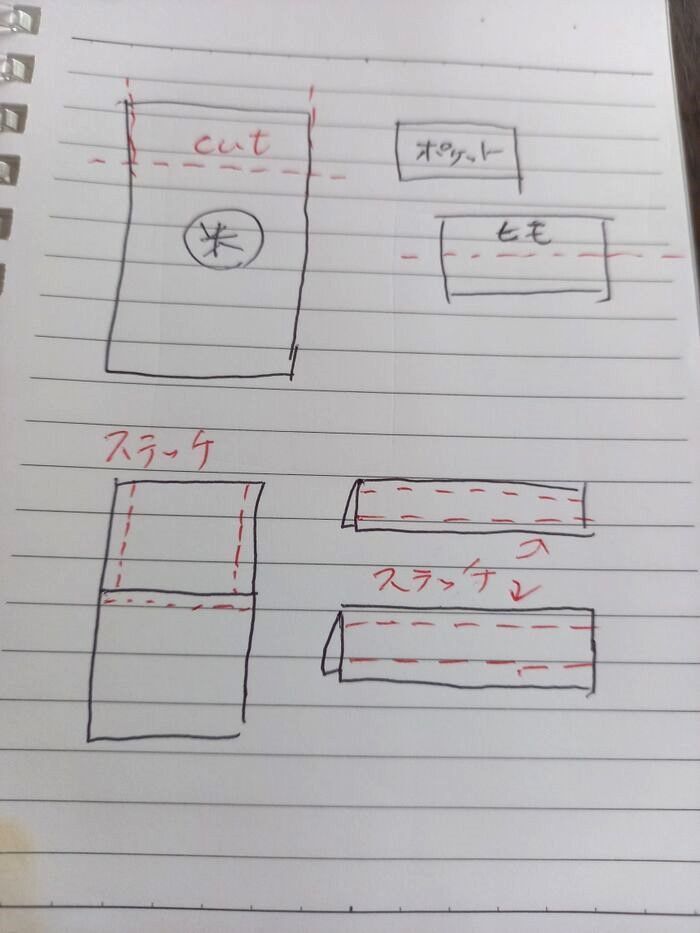 cut
ポケット
米
ヒモ
ステッチ
ステッチ